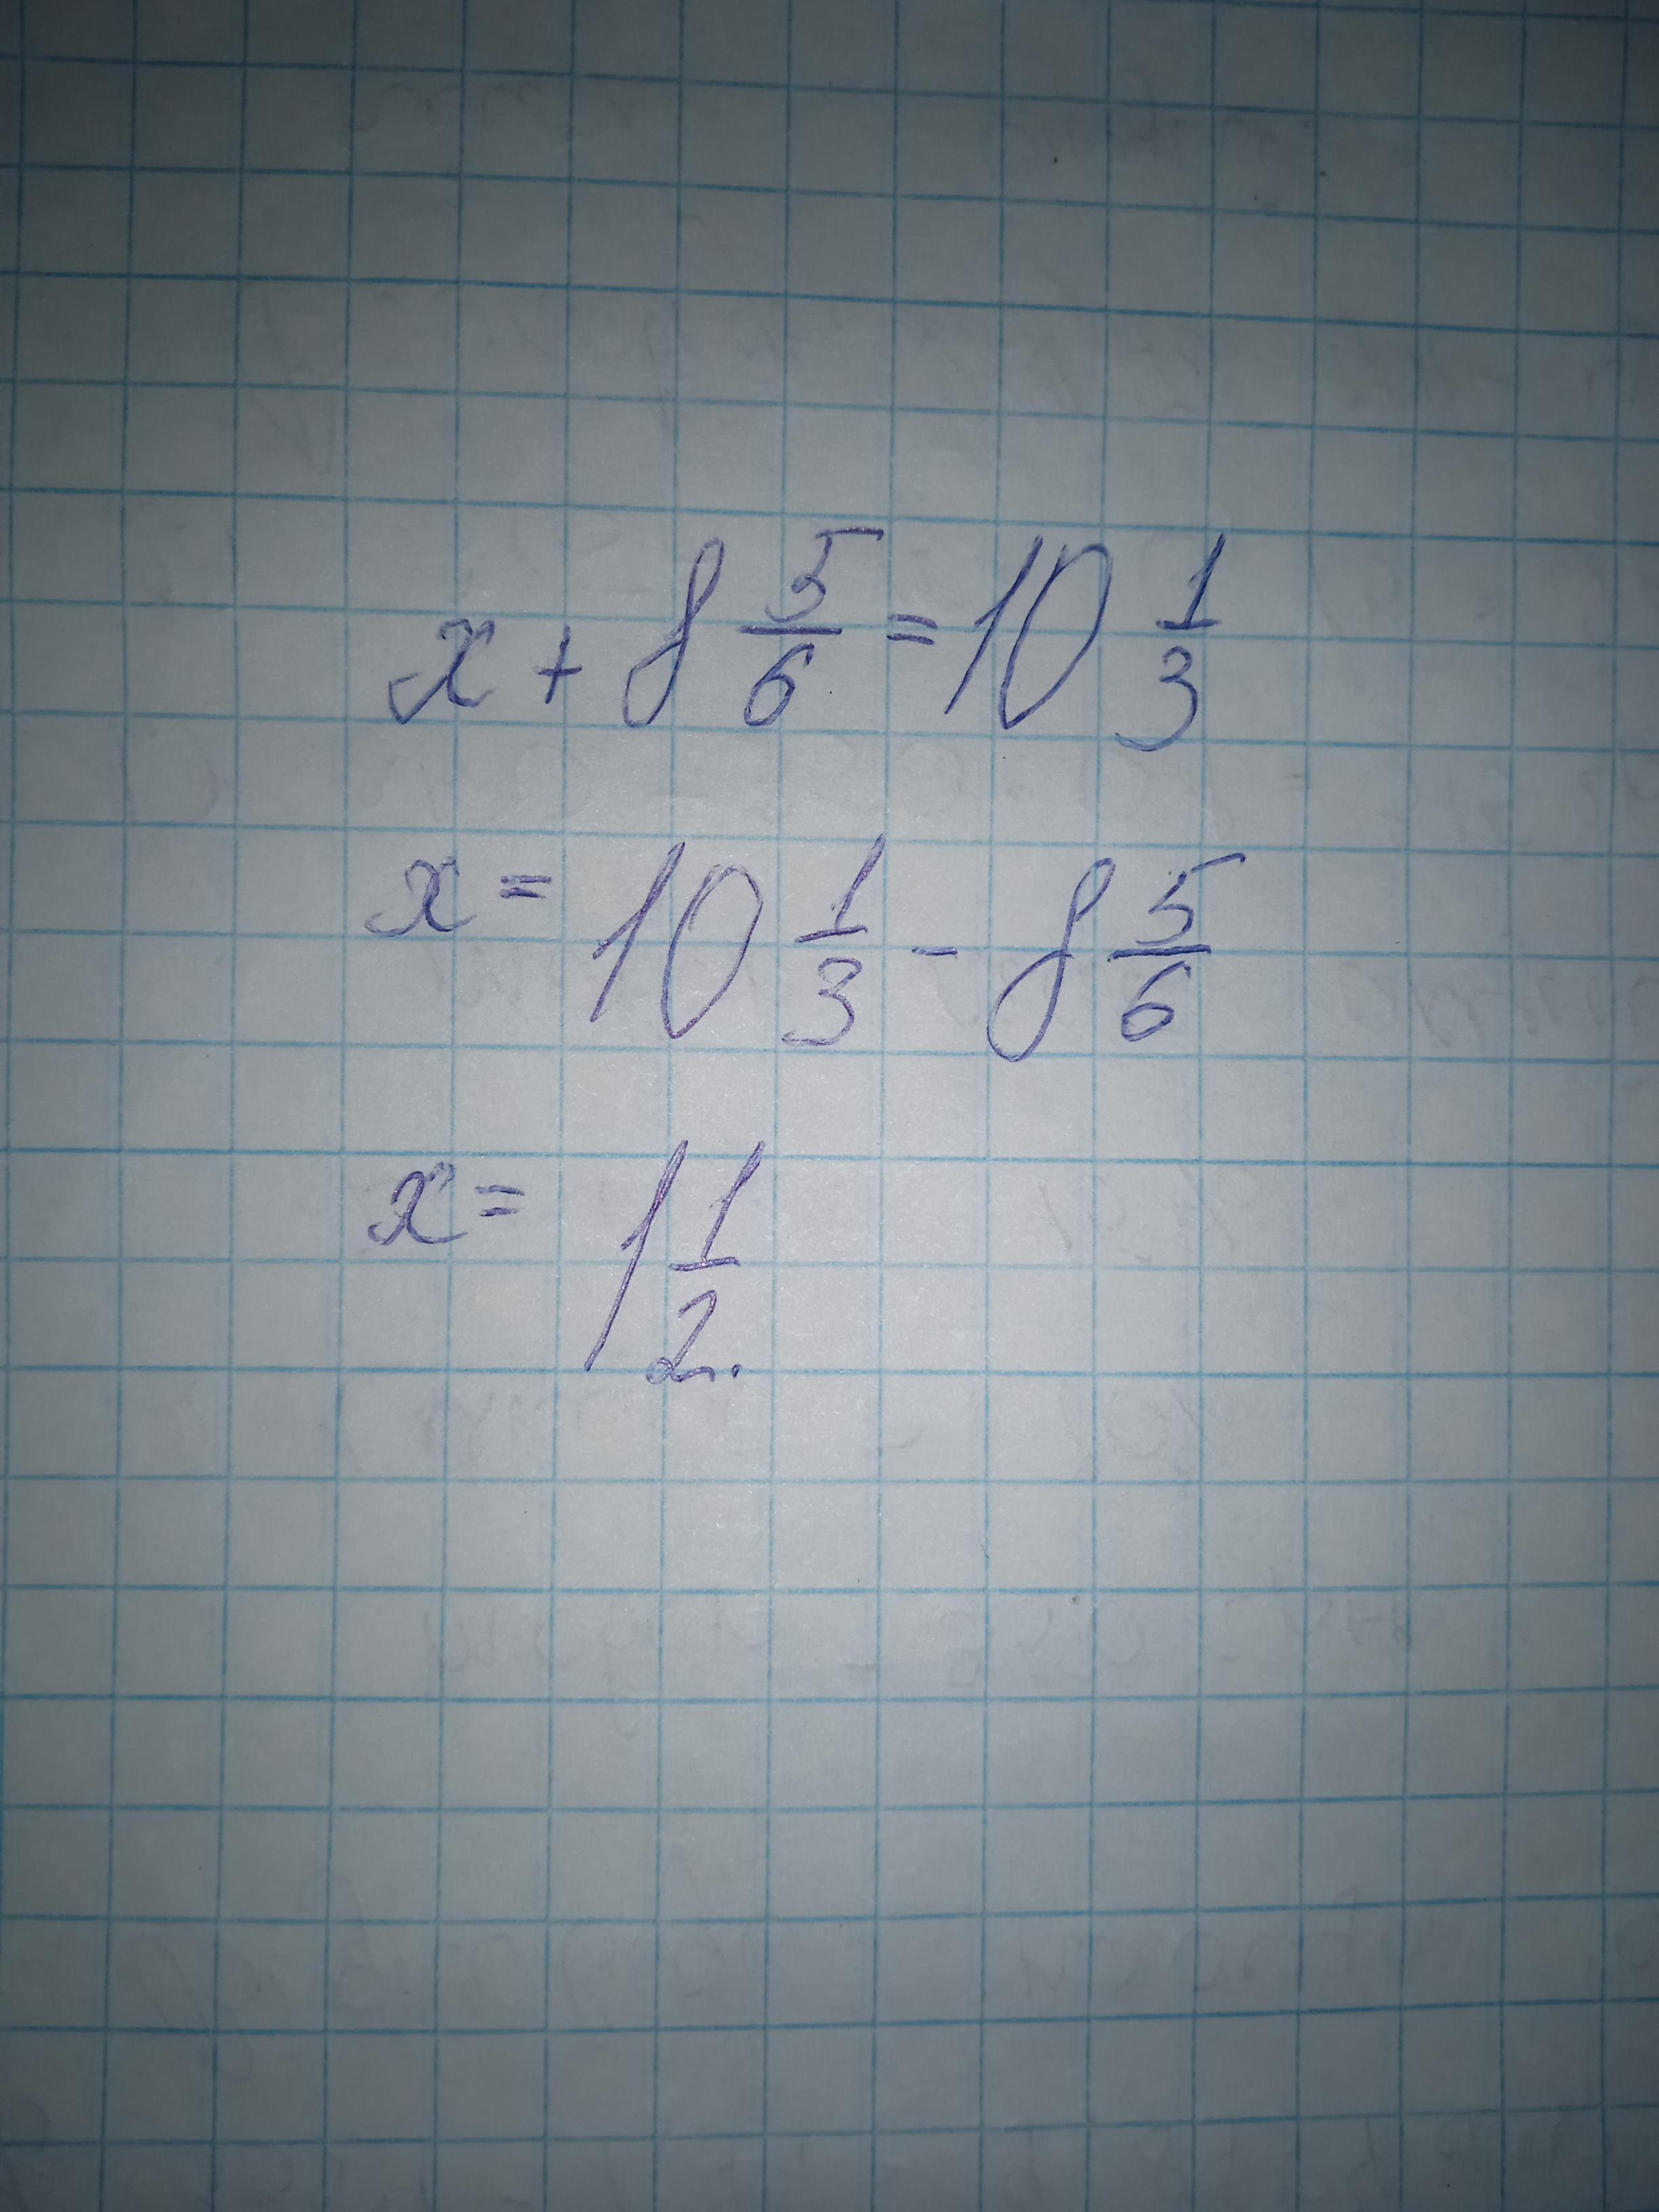 x + 8 5/6 = 10 1/3
x = 10 1/3 - 8 5/6
x = 1 1/2.